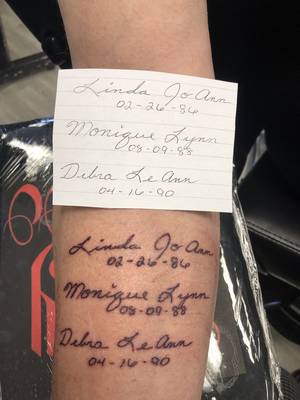 Linda Jo Ann
02-26-86
Monique Lynn
08-09-88
Debra Le Ann
04-16-90
Linda Jo Ann
02-26-86
Monique Lynn
08-09-88
Debra Le Ann
04-16-90